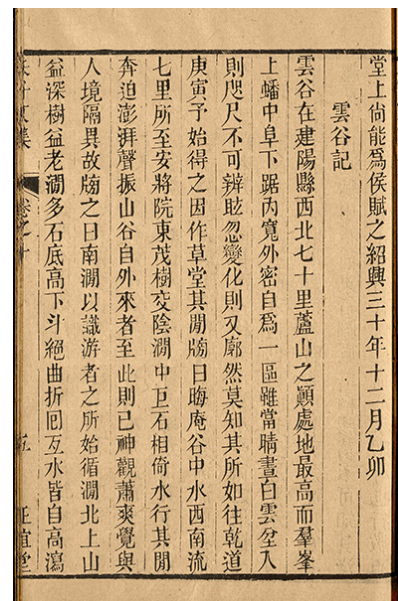 堂上尙能爲侯賦之紹興三十年十二月乙卯
雲谷記
雲谷在建陽縣西北七十里蘆山之顚處地最高而羣峯
上蟠中阜下踞內寬外密自爲一區雖當晴晝白雲坌入
則咫尺不可辨眩忽變化則又廓然莫知其所如往乾道
庚寅予始得之因作草堂其閒牓曰晦庵谷中水西南流
七里所至安將院東茂樹交陰澗中巨石相倚水行其閒
奔迫澎湃聲振山谷自外來者至此則已神觀蕭爽覺與
人境隔異故牓之曰南澗以識游者之所始循澗北上山
益深樹益老澗多石底高下斗絕曲折囘互水皆自高瀉
卷之十
五
正誼堂